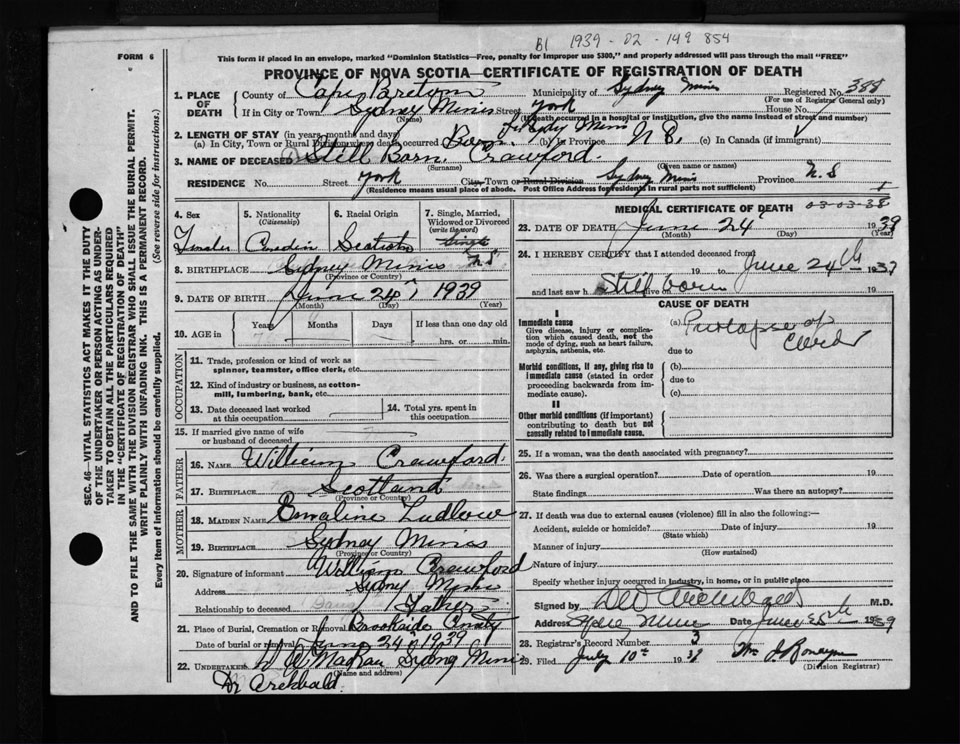 B1 1939 - 02 - 149 854
FORM 6
This form if placed in an envelope, marked "Dominion Statistics—Free, penalty for improper use $300," and properly addressed will pass through the mail "FREE"
PROVINCE OF NOVA SCOTIA—CERTIFICATE OF REGISTRATION OF DEATH
1. PLACE OF DEATH County of Cape Breton Municipality of Sydney Mines Registered No. 388
(For use of Registrar General only)
If in City or Town Sydney Mines Street York House No.
(Name) (If death occurred in a hospital or institution, give the name instead of street and number)
2. LENGTH OF STAY (in years, months, and days)
(a) In City, Town or Rural Division where death occurred Born Sydney Mines (b) In Province (c) In Canada (if immigrant)
3. NAME OF DECEASED Still Born Crawford.
(Surname) (Given name or names)
RESIDENCE No. Street York City, Town or Rural Division Sydney Mines Province N.S
(Residence means usual place of abode. Post Office Address for residents in rural parts not sufficient)
SEC. 46—VITAL STATISTICS ACT MAKES IT THE DUTY
OF THE UNDERTAKER OR PERSON ACTING AS UNDER-
TAKER TO OBTAIN ALL THE PARTICULARS REQUIRED
IN THE "CERTIFICATE OF REGISTRATION OF DEATH"
AND TO FILE THE SAME WITH THE DIVISION REGISTRAR WHO SHALL ISSUE THE BURIAL PERMIT.
WRITE PLAINLY WITH UNFADING INK. THIS IS A PERMANENT RECORD.
Every item of information should be carefully supplied. (See reverse side for instructions.)
4. Sex
5. Nationality (Citizenship)
6. Racial Origin
7. Single, Married, Widowed or Divorced (write the word)
Single
8. BIRTHPLACE Sydney Mines N.S
(Province or Country)
9. DATE OF BIRTH June 24 1939
(Month) (Day) (Year)
10. AGE in Years Months Days If less than one day old
hrs. or min.
OCCUPATION
11. Trade, profession or kind of work as
spinner, teamster, office clerk, etc.
12. Kind of industry or business, as cotton-
mill, lumbering, bank, etc.
13. Date deceased last worked at this occupation
14. Total yrs. spent in this occupation
15. If married give name of wife
or husband of deceased
FATHER
16. NAME William Crawford.
17. BIRTHPLACE Scotland
(Province or Country)
MOTHER
18. MAIDEN NAME Emaline Ludlow
19. BIRTHPLACE Sydney Mines
(Province or Country)
20. Signature of informant William Crawford
Address Sydney Mines
Relationship to deceased Father
21. Place of Burial, Cremation or Removal Brookside
Date of burial or removal June 24 1939
22. UNDERTAKER Sydney Mines
(Name and address)
Dr Archibald.
MEDICAL CERTIFICATE OF DEATH 03-03-38
23. DATE OF DEATH June 24 1939
(Month) (Day) (Year)
24. I HEREBY CERTIFY that I attended deceased from
19 to June 24th 1939
and last saw h Still born alive on 19
CAUSE OF DEATH
I
Immediate cause
Give disease, injury or complica-
tion which caused death, not the
mode of dying, such as heart failure,
asphyxia, asthenia, etc.
(a) Prolapse of
due to
Morbid conditions, if any, giving rise to
immediate cause (stated in order
proceeding backwards from im-
mediate cause).
(b)
due to
(c)
II
Other morbid conditions (if important)
contributing to death but not
causally related to immediate cause.
25. If a woman, was the death associated with pregnancy?
26. Was there a surgical operation? Date of operation 19
State findings Was there an autopsy?
27. If death was due to external causes (violence) fill in also the following:—
Accident, suicide or homicide? Date of injury 19
(State which)
Manner of injury
(How sustained)
Nature of injury
Specify whether injury occurred in industry, in home, or in public place
Signed by Archibald M.D.
Address Date June 25th 1939
28. Registrar's Record Number 3
29. Filed July 10th 19
(Division Registrar)